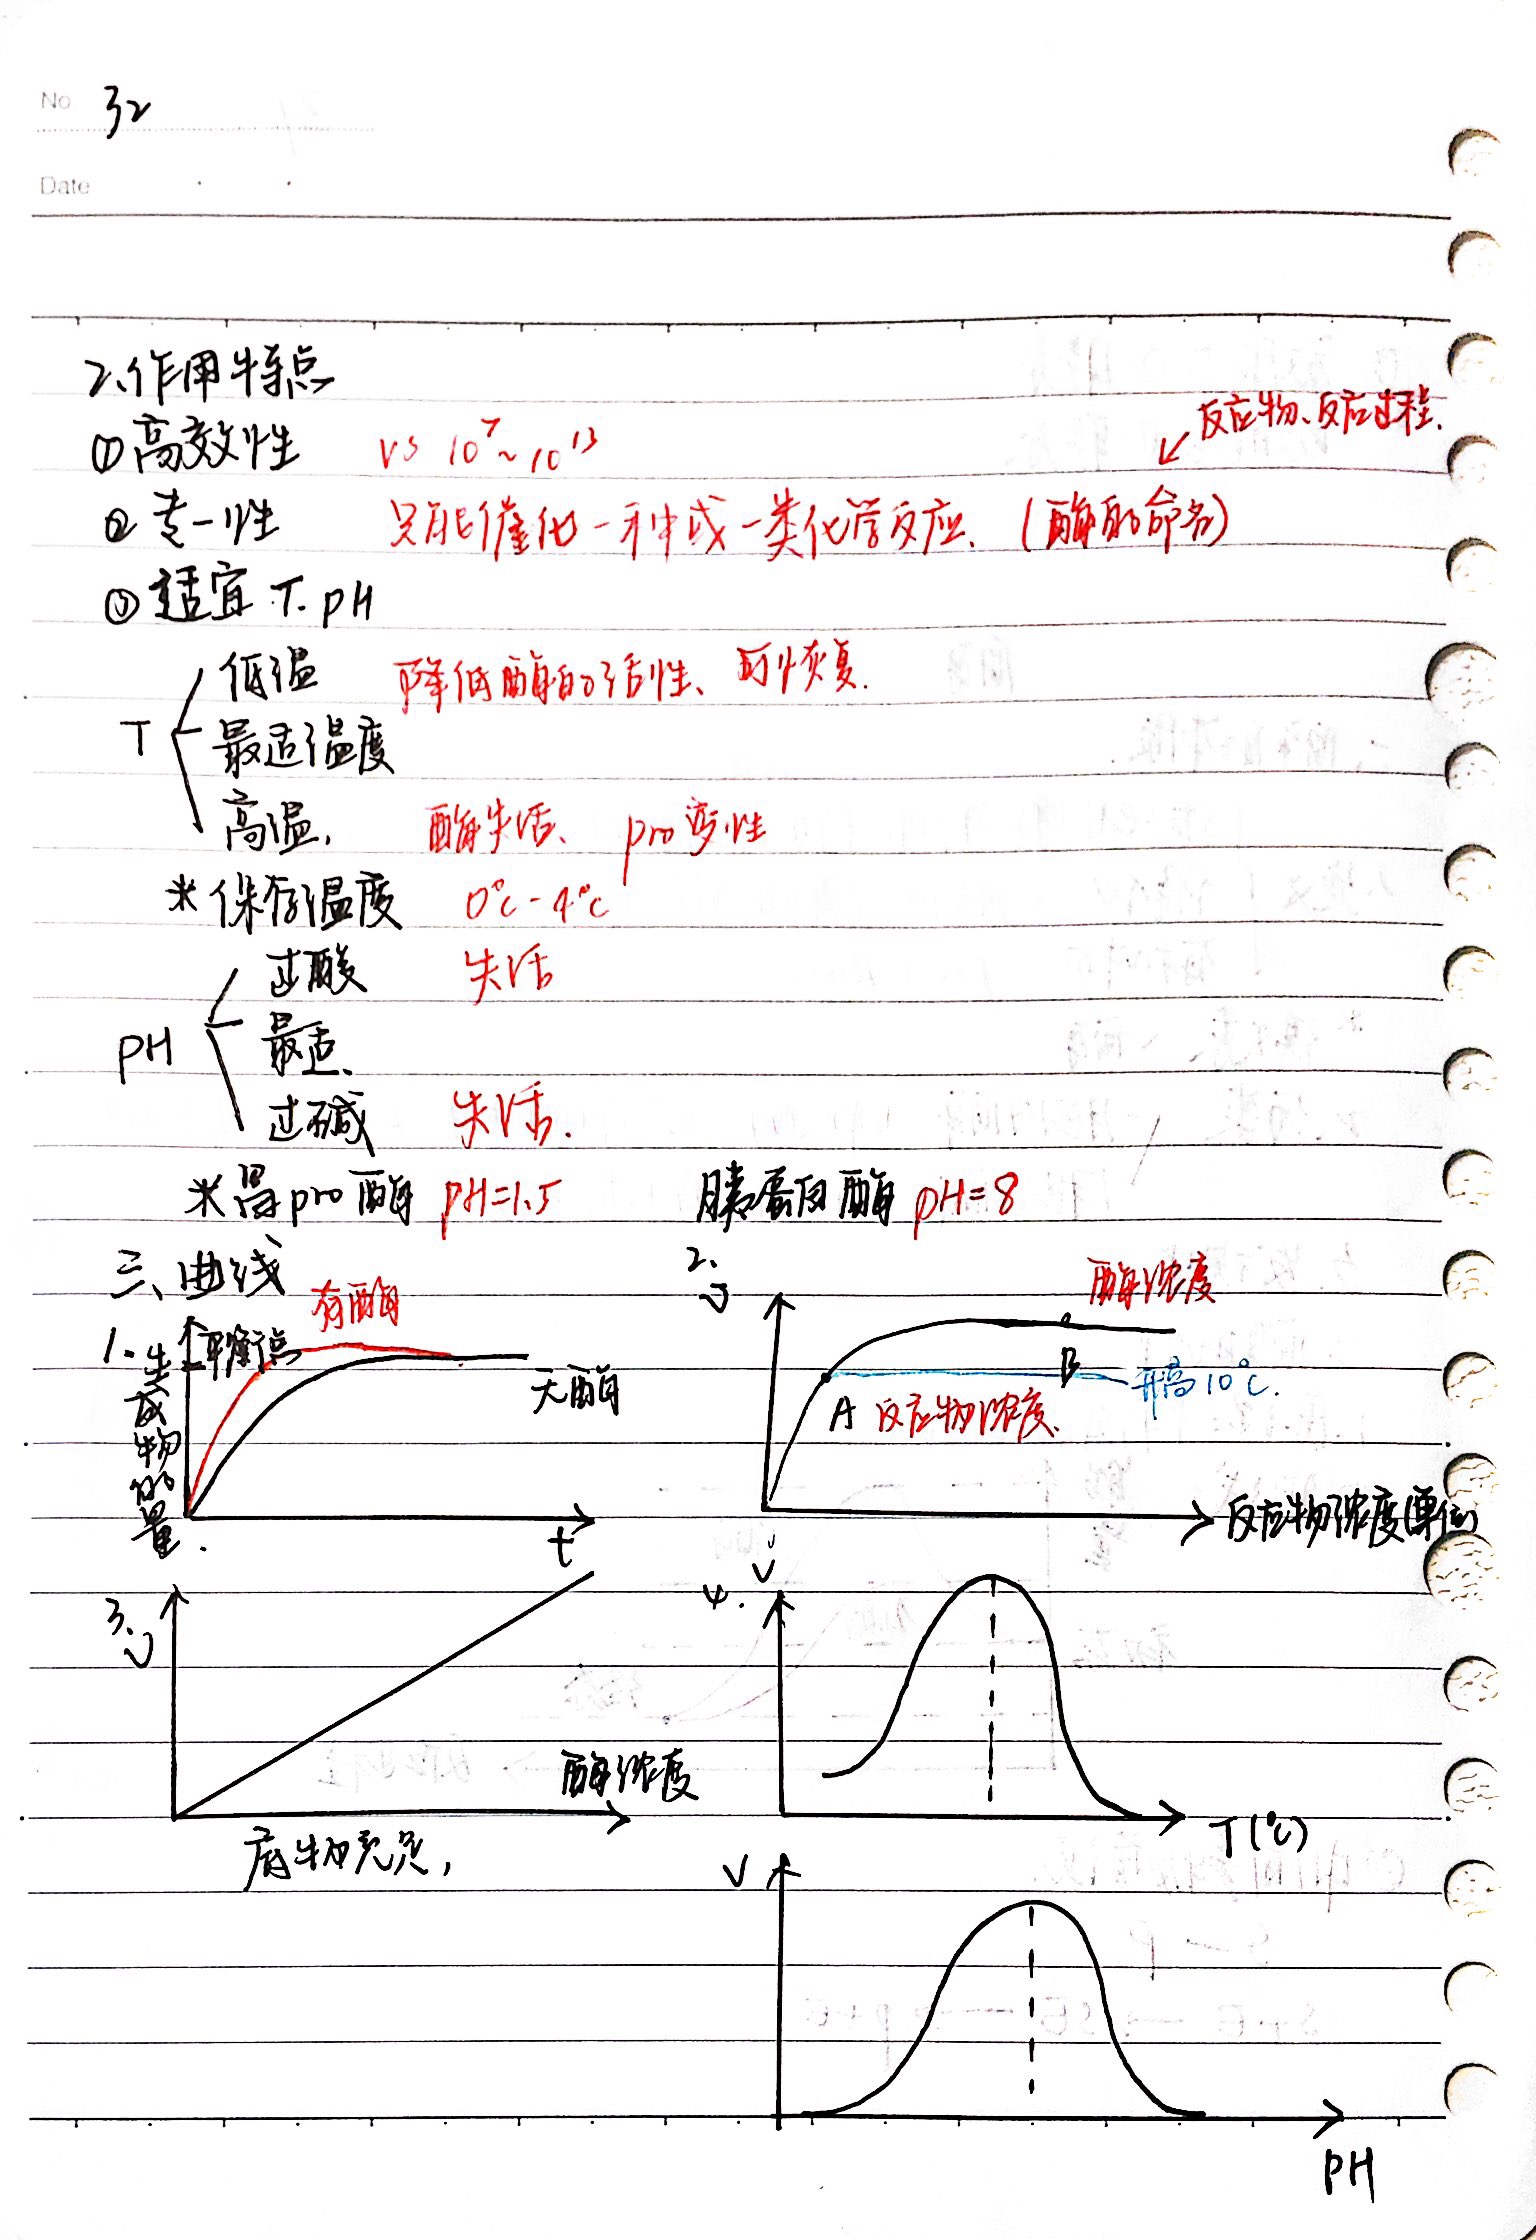 No 32
Date
2、作用特点
反应物、反应过程.
①高效性 VS 10⁷~10¹³
② 专一性 只能催化一种或一类化学反应、(酶的命名)
③适宜 T. pH
低温 降低酶的活性、可恢复.
T 最适温度
高温, 酶失活、pro变性
* 保存温度 0℃-4℃
过酸 失活
PH 最适、
过碱 失活.
*胃pro酶 pH=1.5 胰蛋白酶 pH=8
三、曲线
1. 生成物的量.
平衡点 有酶
无酶
t
2. v
酶浓度
B 升高10℃.
A 反应物浓度.
反应物浓度
3. v
酶浓度
底物充足,
4. v
T(℃)
V
PH